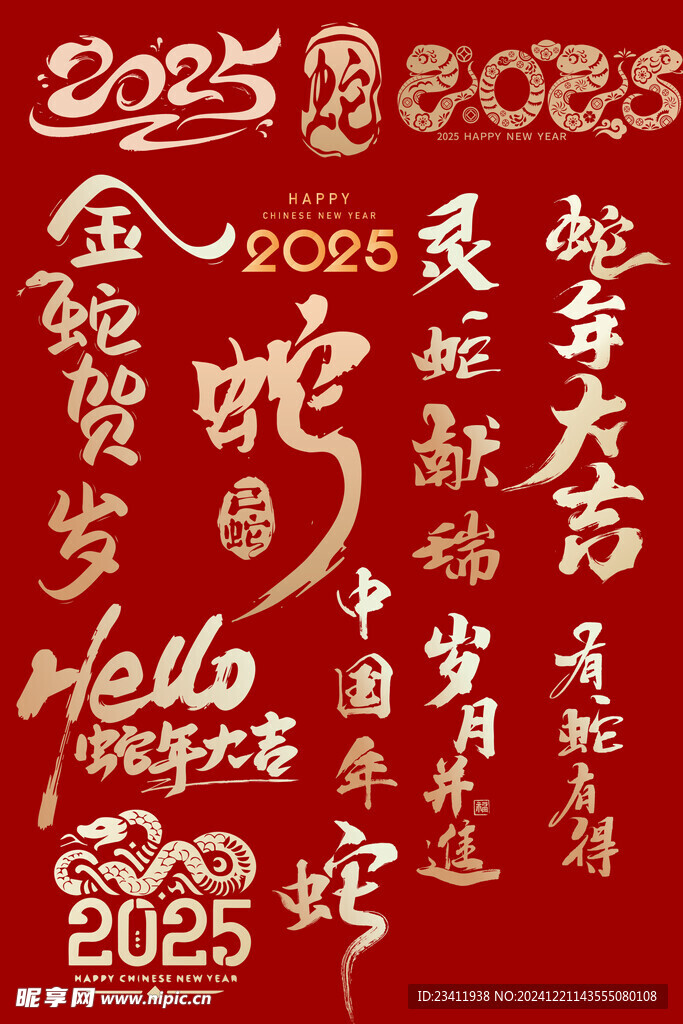 2025
蛇
2025
2025 HAPPY NEW YEAR
金蛇贺岁
HAPPY
CHINESE NEW YEAR
2025
蛇
己蛇
灵蛇献瑞
蛇年大吉
Hello
蛇年大吉
中国年
岁月并進
福
有蛇有得
蛇
2025
HAPPY CHINESE NEW YEAR
昵享网 www.nipic.cn
ID:23411938 NO:20241221143555080108